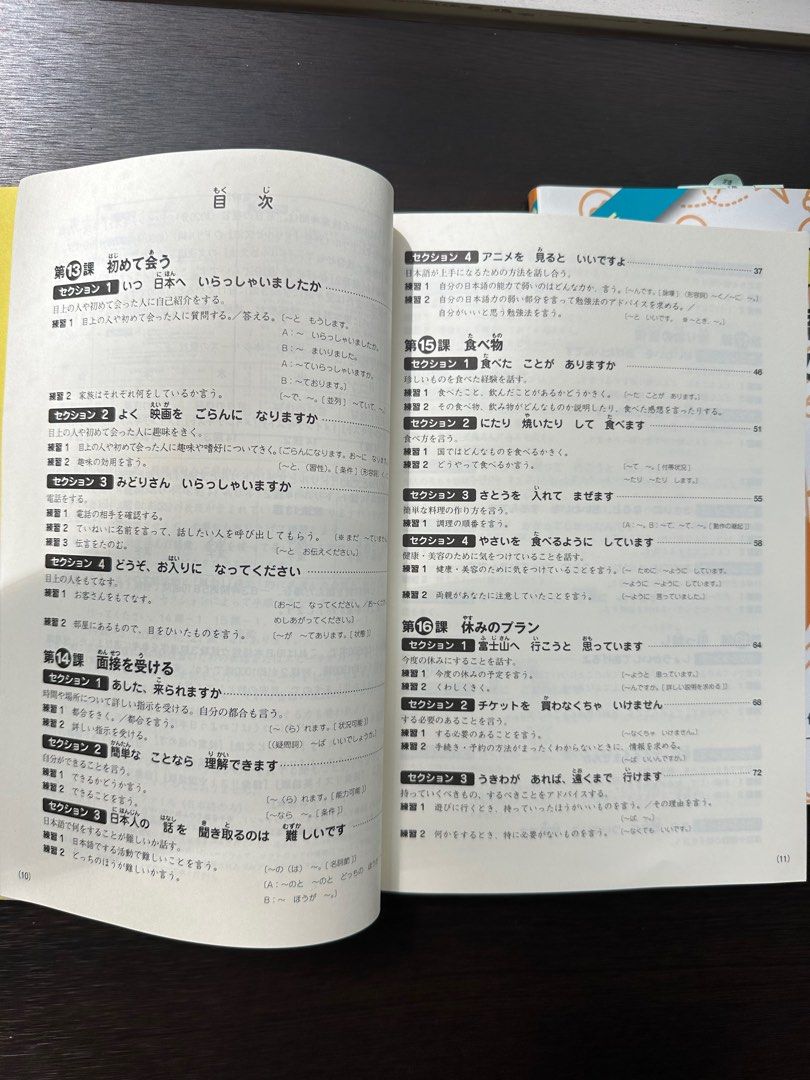 目次
第13課 初めて会う
セクション 1 いつ 日本へ いらっしゃいましたか
目上の人や初めて会った人に自己紹介をする。
練習 1 目上の人や初めて会った人に質問する。／答える。〔～と もうします。
A：～ いらっしゃいましたか。
B：～ まいりました。
A：～ていらっしゃいますか。
B：～ております。〕
練習 2 家族はそれぞれ何をしているか言う。〔～で、～。［並列］ ～ていて、～。
セクション 2 よく 映画を ごらんに なりますか
目上の人や初めて会った人に趣味をきく。
練習 1 目上の人や初めて会った人に趣味や嗜好についてきく。〔ごらんになります。お～に なります。
練習 2 趣味の効用を言う。〔～と、（習性）。［条件］（形容詞）
セクション 3 みどりさん いらっしゃいますか
電話をする。
練習 1 電話の相手を確認する。
練習 2 ていねいに名前を言って、話したい人を呼び出してもらう。〔※まだ ～ていません
練習 3 伝言をたのむ。〔～と お伝えください。〕
セクション 4 どうぞ、お入りに なってください
目上の人をもてなす。
練習 1 お客さんをもてなす。〔お～に なってください。／お～ください
めしあがってください。〕
練習 2 部屋にあるもので、目をひいたものを言う。〔～が ～てあります。［状態］〕
第14課 面接を受ける
セクション 1 あした、来られますか
時間や場所について詳しい指示を受ける。自分の都合も言う。
練習 1 都合をきく。／都合を言う。〔～（ら）れます。［状況可能］〕
練習 2 詳しい指示を受ける。〔（疑問詞）～ば いいでしょうか。〕
セクション 2 簡単な ことなら 理解できます
自分ができることを言う。
練習 1 できるかどうか言う。〔～（ら）れます。［能力可能］〕
練習 2 できることを言う。〔～なら ～。［条件］〕
セクション 3 日本人の 話を 聞き取るのは 難しいです
日本語で何をすることが難しいか話す。
練習 1 日本語でする活動で難しいことを言う。〔～の（は） ～。［名詞節］〕
練習 2 どっちのほうが難しいか言う。〔A：～のと ～のと どっちの ほうが
B：～ ほうが ～。〕
(10)
セクション 4 アニメを 見ると いいですよ 37
日本語が上手になるための方法を話し合う。
練習 1 自分の日本語の能力で弱いのはどんな力か、言う。〔～んです。［故障］（形容詞）～く／～に ～。〕
練習 2 自分の日本語力の弱い部分を言って勉強法のアドバイスを求める。／
自分がいいと思う勉強法を言う。〔～と いいです。 ※～とき、～。〕
第15課 食べ物
セクション 1 食べた ことが ありますか 46
珍しいものを食べた経験を話す。
練習 1 食べたこと、飲んだことがあるかどうかきく。〔～た ことが あります。〕
練習 2 その食べ物、飲み物がどんなものか説明したり、食べた感想を言ったりする。
セクション 2 にたり 焼いたり して 食べます 51
食べ方を言う。
練習 1 国ではどんなものを食べるかきく。
練習 2 どうやって食べるか言う。〔～て ～。［付帯状況］
～たり ～たり します。〕
セクション 3 さとうを 入れて まぜます 55
簡単な料理の作り方を言う。
練習 1 調理の順番を言う。〔A：～。B：～て、～て、～。［動作の継起］〕
セクション 4 やさいを 食べるように しています 58
健康・美容のために気をつけていることを話す。
練習 1 健康・美容のために気をつけていることを言う。〔～ ために ～ように しています。
～ように ～ように しています。〕
練習 2 両親があなたに注意していたことを言う。〔～ように 言っていました。〕
第16課 休みのプラン
セクション 1 富士山へ 行こうと 思っています 64
今度の休みにすることを話す。
練習 1 今度の休みの予定を言う。〔～ようと 思っています。〕
練習 2 くわしくきく。〔～んですか。［詳しい説明を求める］〕
セクション 2 チケットを 買わなくちゃ いけません 68
する必要のあることを言う。
練習 1 する必要のあることを言う。〔～なくちゃ いけません。〕
練習 2 手続き・予約の方法がまったくわからないときに、情報を求める。
〔～ば いいんですか。〕
セクション 3 うきわが あれば、遠くまで 行けます 72
持っていくべきもの、するべきことをアドバイスする。
練習 1 遊びに行くとき、持っていったほうがいいものを言う。／その理由を言う。
〔～ば ～。〕
練習 2 何かをするとき、特に必要がないものを言う。〔～なくても いいです。〕
(11)